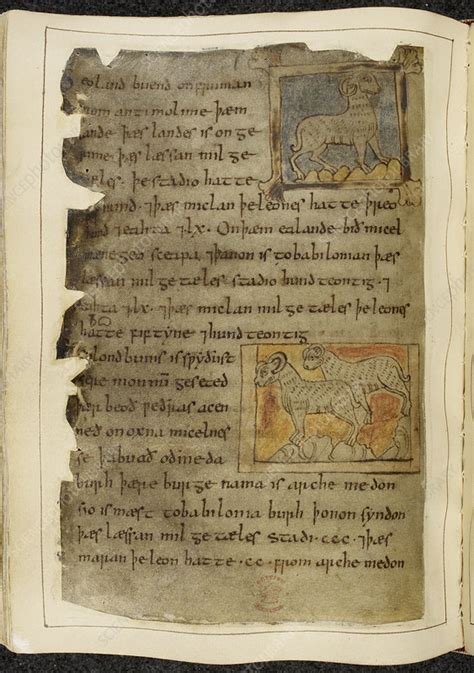 eoland buend onfruman
from antimolime þæm
lande þæs landes is onge
rime þæs læssan mil ge
tæles · þe stadio hatte
hund · ⁊þæs miclan þeleones hatte þreo
hund ⁊eahta ⁊lx · Onþæm ealande bið micel
mænego sceapa ⁊þanon is tobabiloniman þæs
læssan mil ge tæles stadio hund teontig · ⁊
eahta ⁊lx · ⁊þæs miclan mil ge tæles þeleones
hatte fiftyne ⁊hund teontig
lond bunis is spyðust
monnum geseted
þær beoð peðras acen
ned on oxna micelnes
se þabuað oðmeda
burh þære burge nama is arche medon
sio is mæst tobabilonia burh þonon syndon
þæs læssan mil ge tæles stadi · ccc · ⁊þæs
maran þeleon hatte · cc · from arche medon